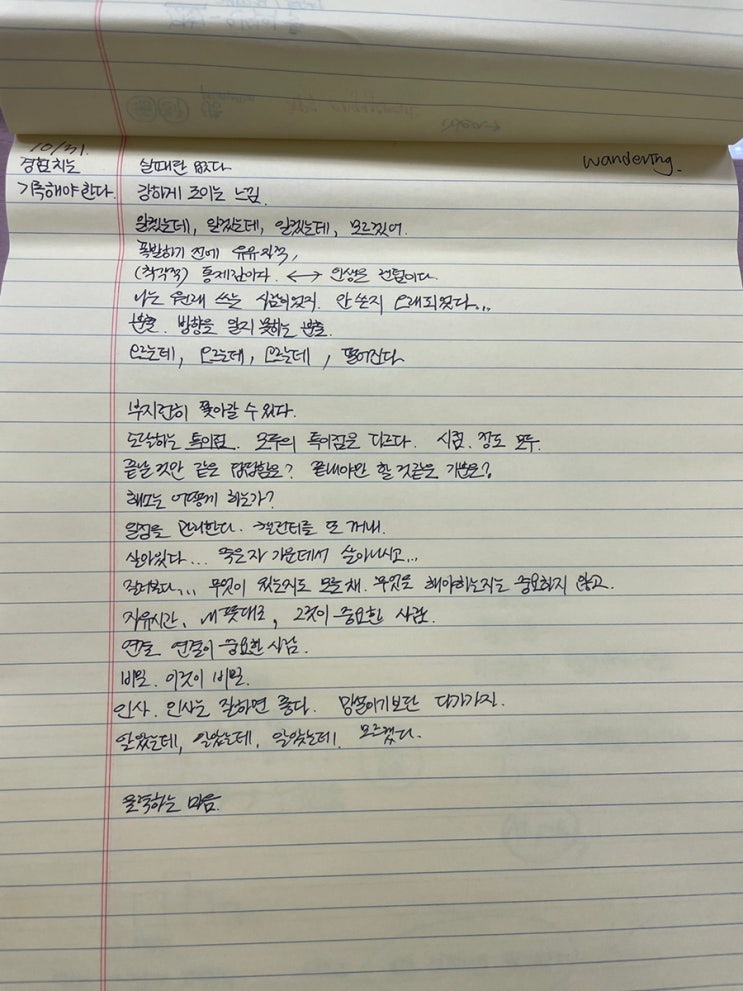 10/31.
wandering.
경험치는
기록해야한다.
살때란 없다
강하게 조이는 느낌.
알겠는데, 알겠는데, 알겠는데, 모르겠어.
폭발하기 전에 유유자적,
(착각적) 통제감이다. ↔ 인생은 전탐이다.
나는 원래 쓰는 사람이었지. 안 쓴지 오래되었다...
분출. 방향을 알지 못하는 분출.
오르는데, 오르는데, 오르는데, 떨어진다.
부지런히 쫓아갈 수 있다.
도달하는 특이점. 모두의 특이점은 다르다. 시점. 강도 모두.
끝날 것만 같은 답답함은? 끝내야만 할 것같은 기분은?
해소는 어떻게 하는가?
일정을 관리한다. 캘린더를 또 꺼내.
살아있다... 죽은자 가운데서 살아나시고...
기다린다... 무엇이 있는지도 모른채. 무엇을 해야하는지는 중요하지 않고.
자유시간, 내 뜻대로, 그것이 중요한 사람.
연결. 연결이 중요한 사람.
비밀. 이것이 비밀.
인사. 인사는 잘하면 좋다. 망설이기보단 다가가지.
알았는데, 알았는데, 알았는데. 모르겠다.
울컥하는 마음.